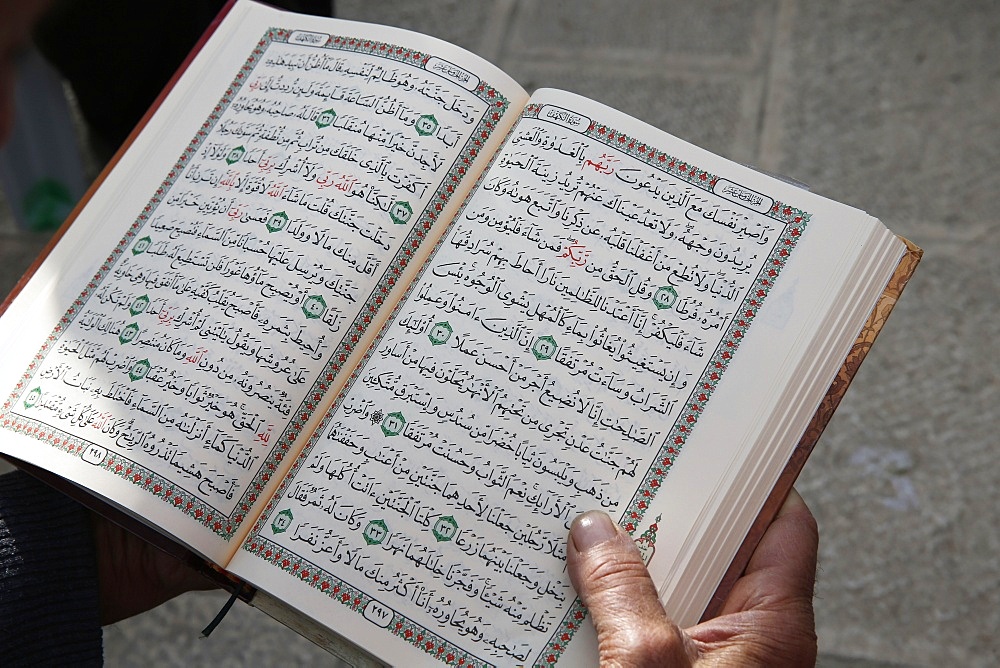 سورة الكهف
الجزء الخامس عشر
وَاصْبِرْ نَفْسَكَ مَعَ الَّذِينَ يَدْعُونَ رَبَّهُم بِالْغَدَوٰةِ وَالْعَشِيِّ
يُرِيدُونَ وَجْهَهُۥ وَلَا تَعْدُ عَيْنَاكَ عَنْهُمْ تُرِيدُ زِينَةَ الْحَيَوٰةِ
الدُّنْيَا وَلَا تُطِعْ مَنْ أَغْفَلْنَا قَلْبَهُۥ عَن ذِكْرِنَا وَاتَّبَعَ هَوَىٰهُ وَكَانَ
أَمْرُهُۥ فُرُطًا ٢٨ وَقُلِ الْحَقُّ مِن رَّبِّكُمْ فَمَن شَآءَ فَلْيُؤْمِن وَمَن
شَآءَ فَلْيَكْفُرْ إِنَّآ أَعْتَدْنَا لِلظَّٰلِمِينَ نَارًا أَحَاطَ بِهِمْ سُرَادِقُهَا
وَإِن يَسْتَغِيثُوا يُغَاثُوا بِمَآءٍ كَالْمُهْلِ يَشْوِي الْوُجُوهَ بِئْسَ
الشَّرَابُ وَسَآءَتْ مُرْتَفَقًا ٢٩ إِنَّ الَّذِينَ ءَامَنُوا وَعَمِلُوا
الصَّٰلِحَٰتِ إِنَّا لَا نُضِيعُ أَجْرَ مَنْ أَحْسَنَ عَمَلًا ٣٠ أُولَٰٓئِكَ
لَهُمْ جَنَّٰتُ عَدْنٍ تَجْرِي مِن تَحْتِهِمُ الْأَنْهَٰرُ يُحَلَّوْنَ فِيهَا مِنْ أَسَاوِرَ
مِن ذَهَبٍ وَيَلْبَسُونَ ثِيَابًا خُضْرًا مِّن سُندُسٍ وَإِسْتَبْرَقٍ مُّتَّكِـِٔينَ
الْأَرَآئِكِ نِعْمَ الثَّوَابُ وَحَسُنَتْ مُرْتَفَقًا ٣١ ۞ وَاضْرِبْ
رَّجُلَيْنِ جَعَلْنَا لِأَحَدِهِمَا جَنَّتَيْنِ مِنْ أَعْنَٰبٍ وَحَفَفْنَٰهُمَا
بِنَخْلٍ وَجَعَلْنَا بَيْنَهُمَا زَرْعًا ٣٢ كِلْتَا الْجَنَّتَيْنِ ءَاتَتْ أُكُلَهَا وَلَمْ
تَظْلِم مِّنْهُ شَيْـًٔا وَفَجَّرْنَا خِلَٰلَهُمَا نَهَرًا ٣٣ وَكَانَ لَهُۥ ثَمَرٌ فَقَالَ
لِصَٰحِبِهِۦ وَهُوَ يُحَاوِرُهُۥٓ أَنَا أَكْثَرُ مِنكَ مَالًا وَأَعَزُّ نَفَرًا ٣٤
٢٩٧
سورة الكهف
الجزء الخامس عشر
وَدَخَلَ جَنَّتَهُۥ وَهُوَ ظَالِمٌ لِّنَفْسِهِۦ قَالَ مَآ أَظُنُّ أَن تَبِيدَ هَٰذِهِۦٓ
أَبَدًا ٣٥ وَمَآ أَظُنُّ السَّاعَةَ قَآئِمَةً وَلَئِن رُّدِدتُّ إِلَىٰ رَبِّي
لَأَجِدَنَّ خَيْرًا مِّنْهَا مُنقَلَبًا ٣٦ قَالَ لَهُۥ صَاحِبُهُۥ وَهُوَ يُحَاوِرُهُۥٓ
أَكَفَرْتَ بِالَّذِي خَلَقَكَ مِن تُرَابٍ ثُمَّ مِن نُّطْفَةٍ ثُمَّ سَوَّىٰكَ رَجُلًا
٣٧ لَّٰكِنَّا هُوَ اللَّهُ رَبِّي وَلَآ أُشْرِكُ بِرَبِّيٓ أَحَدًا ٣٨ وَلَوْلَآ إِذْ
دَخَلْتَ جَنَّتَكَ قُلْتَ مَا شَآءَ اللَّهُ لَا قُوَّةَ إِلَّا بِاللَّهِ إِن تَرَنِ أَنَا۠
أَقَلَّ مِنكَ مَالًا وَوَلَدًا ٣٩ فَعَسَىٰ رَبِّيٓ أَن يُؤْتِيَنِ خَيْرًا مِّن
جَنَّتِكَ وَيُرْسِلَ عَلَيْهَا حُسْبَانًا مِّنَ السَّمَآءِ فَتُصْبِحَ صَعِيدًا
زَلَقًا ٤٠ أَوْ يُصْبِحَ مَآؤُهَا غَوْرًا فَلَن تَسْتَطِيعَ لَهُۥ طَلَبًا ٤١
وَأُحِيطَ بِثَمَرِهِۦ فَأَصْبَحَ يُقَلِّبُ كَفَّيْهِ عَلَىٰ مَآ أَنفَقَ فِيهَا وَهِيَ خَاوِيَةٌ
عَلَىٰ عُرُوشِهَا وَيَقُولُ يَٰلَيْتَنِي لَمْ أُشْرِكْ بِرَبِّيٓ أَحَدًا ٤٢ وَلَمْ تَكُن لَّهُۥ
فِئَةٌ يَنصُرُونَهُۥ مِن دُونِ اللَّهِ وَمَا كَانَ مُنتَصِرًا ٤٣ هُنَالِكَ الْوَلَٰيَةُ
لِلَّهِ الْحَقِّ هُوَ خَيْرٌ ثَوَابًا وَخَيْرٌ عُقْبًا ٤٤ وَاضْرِبْ لَهُم مَّثَلَ الْحَيَوٰةِ
الدُّنْيَا كَمَآءٍ أَنزَلْنَٰهُ مِنَ السَّمَآءِ فَاخْتَلَطَ بِهِۦ نَبَاتُ الْأَرْضِ
فَأَصْبَحَ هَشِيمًا تَذْرُوهُ الرِّيَٰحُ وَكَانَ اللَّهُ عَلَىٰ كُلِّ شَيْءٍ مُّقْتَدِرًا ٤٥
٢٩٨